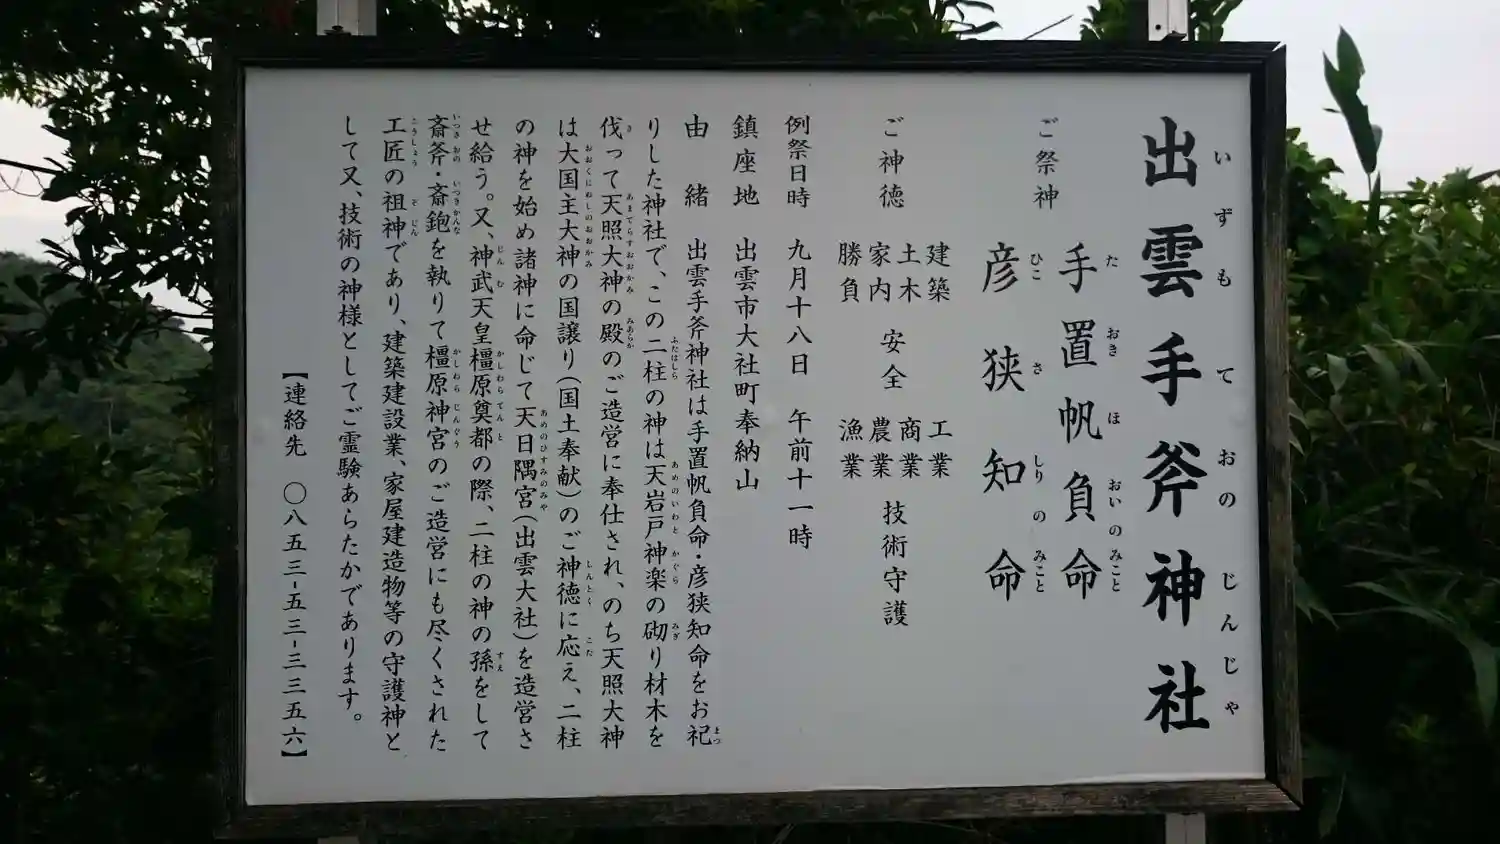 出雲手斧神社
いずもておのじんじゃ
ご祭神
手置帆負命
たおきほおいのみこと
彦狭知命
ひこさしりのみこと
ご神徳
建築 工業
土木 商業
家内安全 農業 技術守護
勝負 漁業
例祭日時 九月十八日 午前十一時
鎮座地 出雲市大社町奉納山
由緒 出雲手斧神社は手置帆負命・彦狭知命をお祀
りした神社で、この二柱の神は天岩戸神楽の砌り材木を
伐って天照大神の殿のご造営に奉仕され、のち天照大神
は大国主大神の国譲り(国土奉献)のご神徳に応え、二柱
の神を始め諸神に命じて天日隅宮(出雲大社)を造営さ
せ給う。又、神武天皇橿原奠都の際、二柱の神の孫をして
斎斧・斎鉋を執りて橿原神宮のご造営にも尽くされた
工匠の祖神であり、建築建設業、家屋建造物等の守護神と
して又、技術の神様としてご霊験あらたかであります。
【連絡先 〇八五三-五三-三三五六】